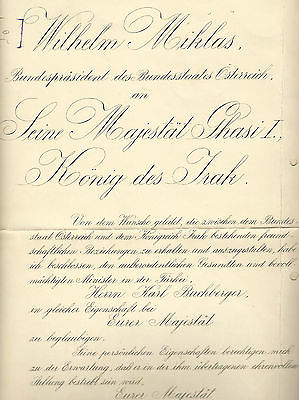 Wilhelm Miklas,
Bundespräsident des Bundesstaates Österreich,
an
Seine Majestät Ghasi I.,
König des Irak.
Von dem Wunsche geleitet, die zwischen dem Bundes-
staat Österreich und dem Königreich Irak bestehenden freund-
schaftlichen Beziehungen zu erhalten und auszugestalten, habe
ich beschlossen, den außerordentlichen Gesandten und bevoll-
mächtigten Minister in der Türkei,
Herrn Karl Buchberger,
in gleicher Eigenschaft bei
Eurer Majestät
zu beglaubigen.
Seine persönlichen Eigenschaften berechtigen mich
zu der Erwartung, daß er in der ihm übertragenen ehrenvollen
Stellung bestrebt sein wird,
Eurer Majestät